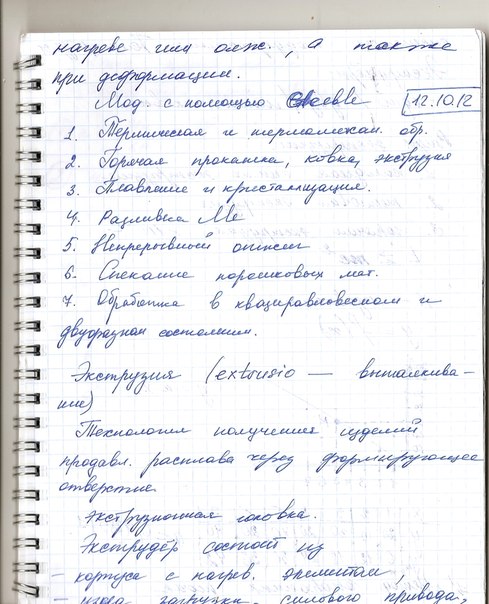 нагреве или олж., а также
при деформации.
Мод. с помощью Gleeble
12.10.12
1. Термическая и термомехан. обр.
2. Горячая прокатка, ковка, экструзия
3. Плавление и кристаллизация.
4. Разливка Ме
5. Непрерывный отжиг
6. Спекание порошковых мат.
7. Обработка в квазиравновесном и
двухфазном состоянии.
Экструзия (extrusio — выталкива-
ние)
Технология получения изделий
продавл. расплава через формирующее
отверстие
Экструзионная головка.
Экструдер состоит из
- корпуса с нагрев. элементам,
загрузки, силового привода,